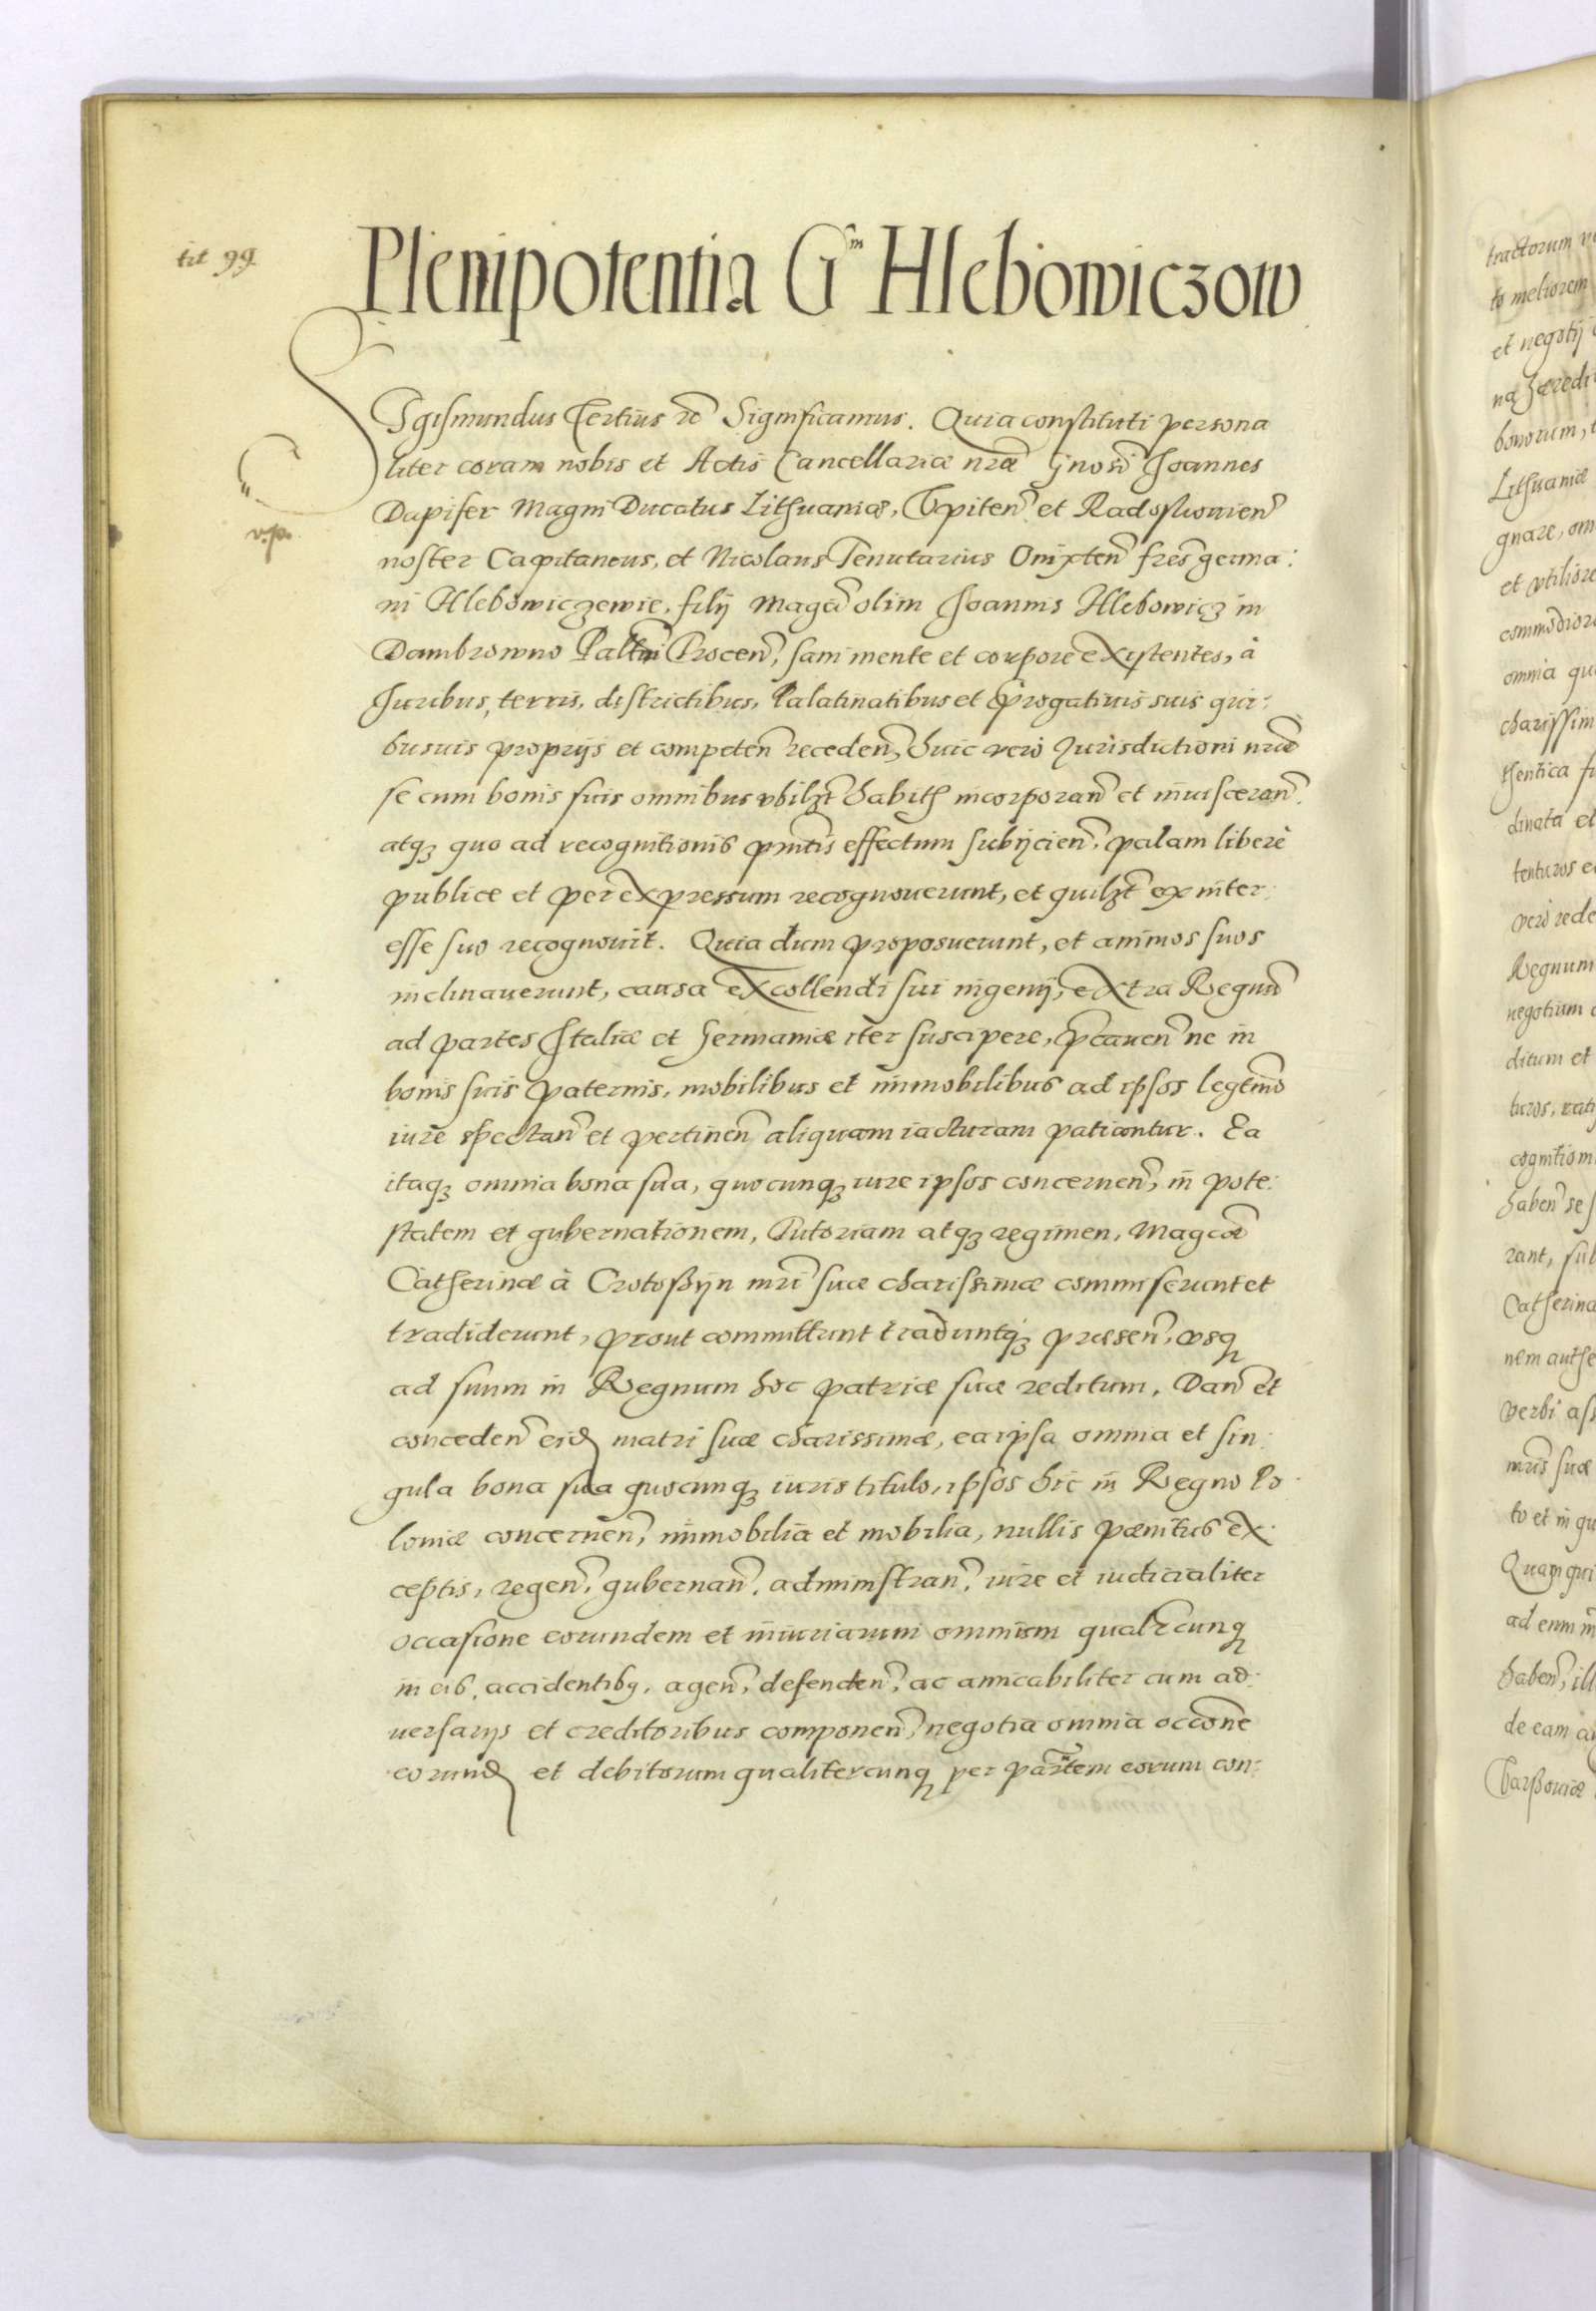 tit 99.
Plenipotentia G^m Hlebowiczow
Sgismundus Tertius rc̃ Significamus. Quia constituti persona
liter coram nobis et Actis Cancellariæ nræ Gñosi Joannes
Dapifer Magni Ducatus Lithuaniæ, Vpiteñ et Radosscovieñ
noster Capitaneus, et Nicolaus Tenutarius Onixteñ fres̃ germa:
ni Hlebowiczewie, filij Magci olim Joannis Hlebowicz in
Dambrowno Paltni Troceñ, sani mente et corpore existentes, à
Juribus, terris, districtibus, Palatinatibus et progatiuis suis qui:
busuis proprijs et competeñ recedeñ, huic verò Jurisdictioni nræ
se cum bonis suis omnibus vbilzt habith incorporañ et inuiscerañ.
atqȝ quo ad recognitionis pñtis effectum subijcieñ, palam liberè
publice et per expressum recognouerunt, et quilzt ex inter:
esse suo recognouit. Quia dum proposuerunt, et animos suos
inclinauerunt, causa excollendi sui ingenij, extra Regnũ
ad partes Italiæ et Germaniæ iter suscipere, pcaueñ ne in
bonis suis paternis, mobilibus et immobilibus ad ipsos legtimo
iure spectañ et pertineñ aliquam iacturam patiantur. Ea
itaqȝ omnia bona sua, quocunqȝ iure ipsos concerneñ, in pote:
statem et gubernationem, Tutoriam atqȝ regimen, Magcæ
Catherinæ à Crotoßijn mri suæ charissimæ commiserunt et
tradiderunt, prout committunt traduntqȝ præseñ, vsqȝ
ad suum in Regnum hoc patriæ suæ reditum. Dañ et
concedeñ eid matri suæ charissimæ, ea ipsa omnia et sin:
gula bona sua quocunqȝ iuris titulo, ipsos hic in Regno Po:
loniæ concerneñ, immobilia et mobilia, nullis pænitus ex:
ceptis, regeñ, gubernañ, administrañ, iure et iudicialiter
occasione eorundem et iniuriarum omnium qualrcunqȝ
in eis, accidentibȝ, ageñ, defendeñ, ac amicabiliter cum ad:
uersarijs et creditoribus componeñ, negotia omnia occõne
eorund et debitorum qualitercunqȝ per partem eorum con:
tractorum
to meliorem
et negotij
bonorum,
Lithuaniæ
gnare,
omnia
Regnum
negotium
ditum et
Catherina
verbi
to et in